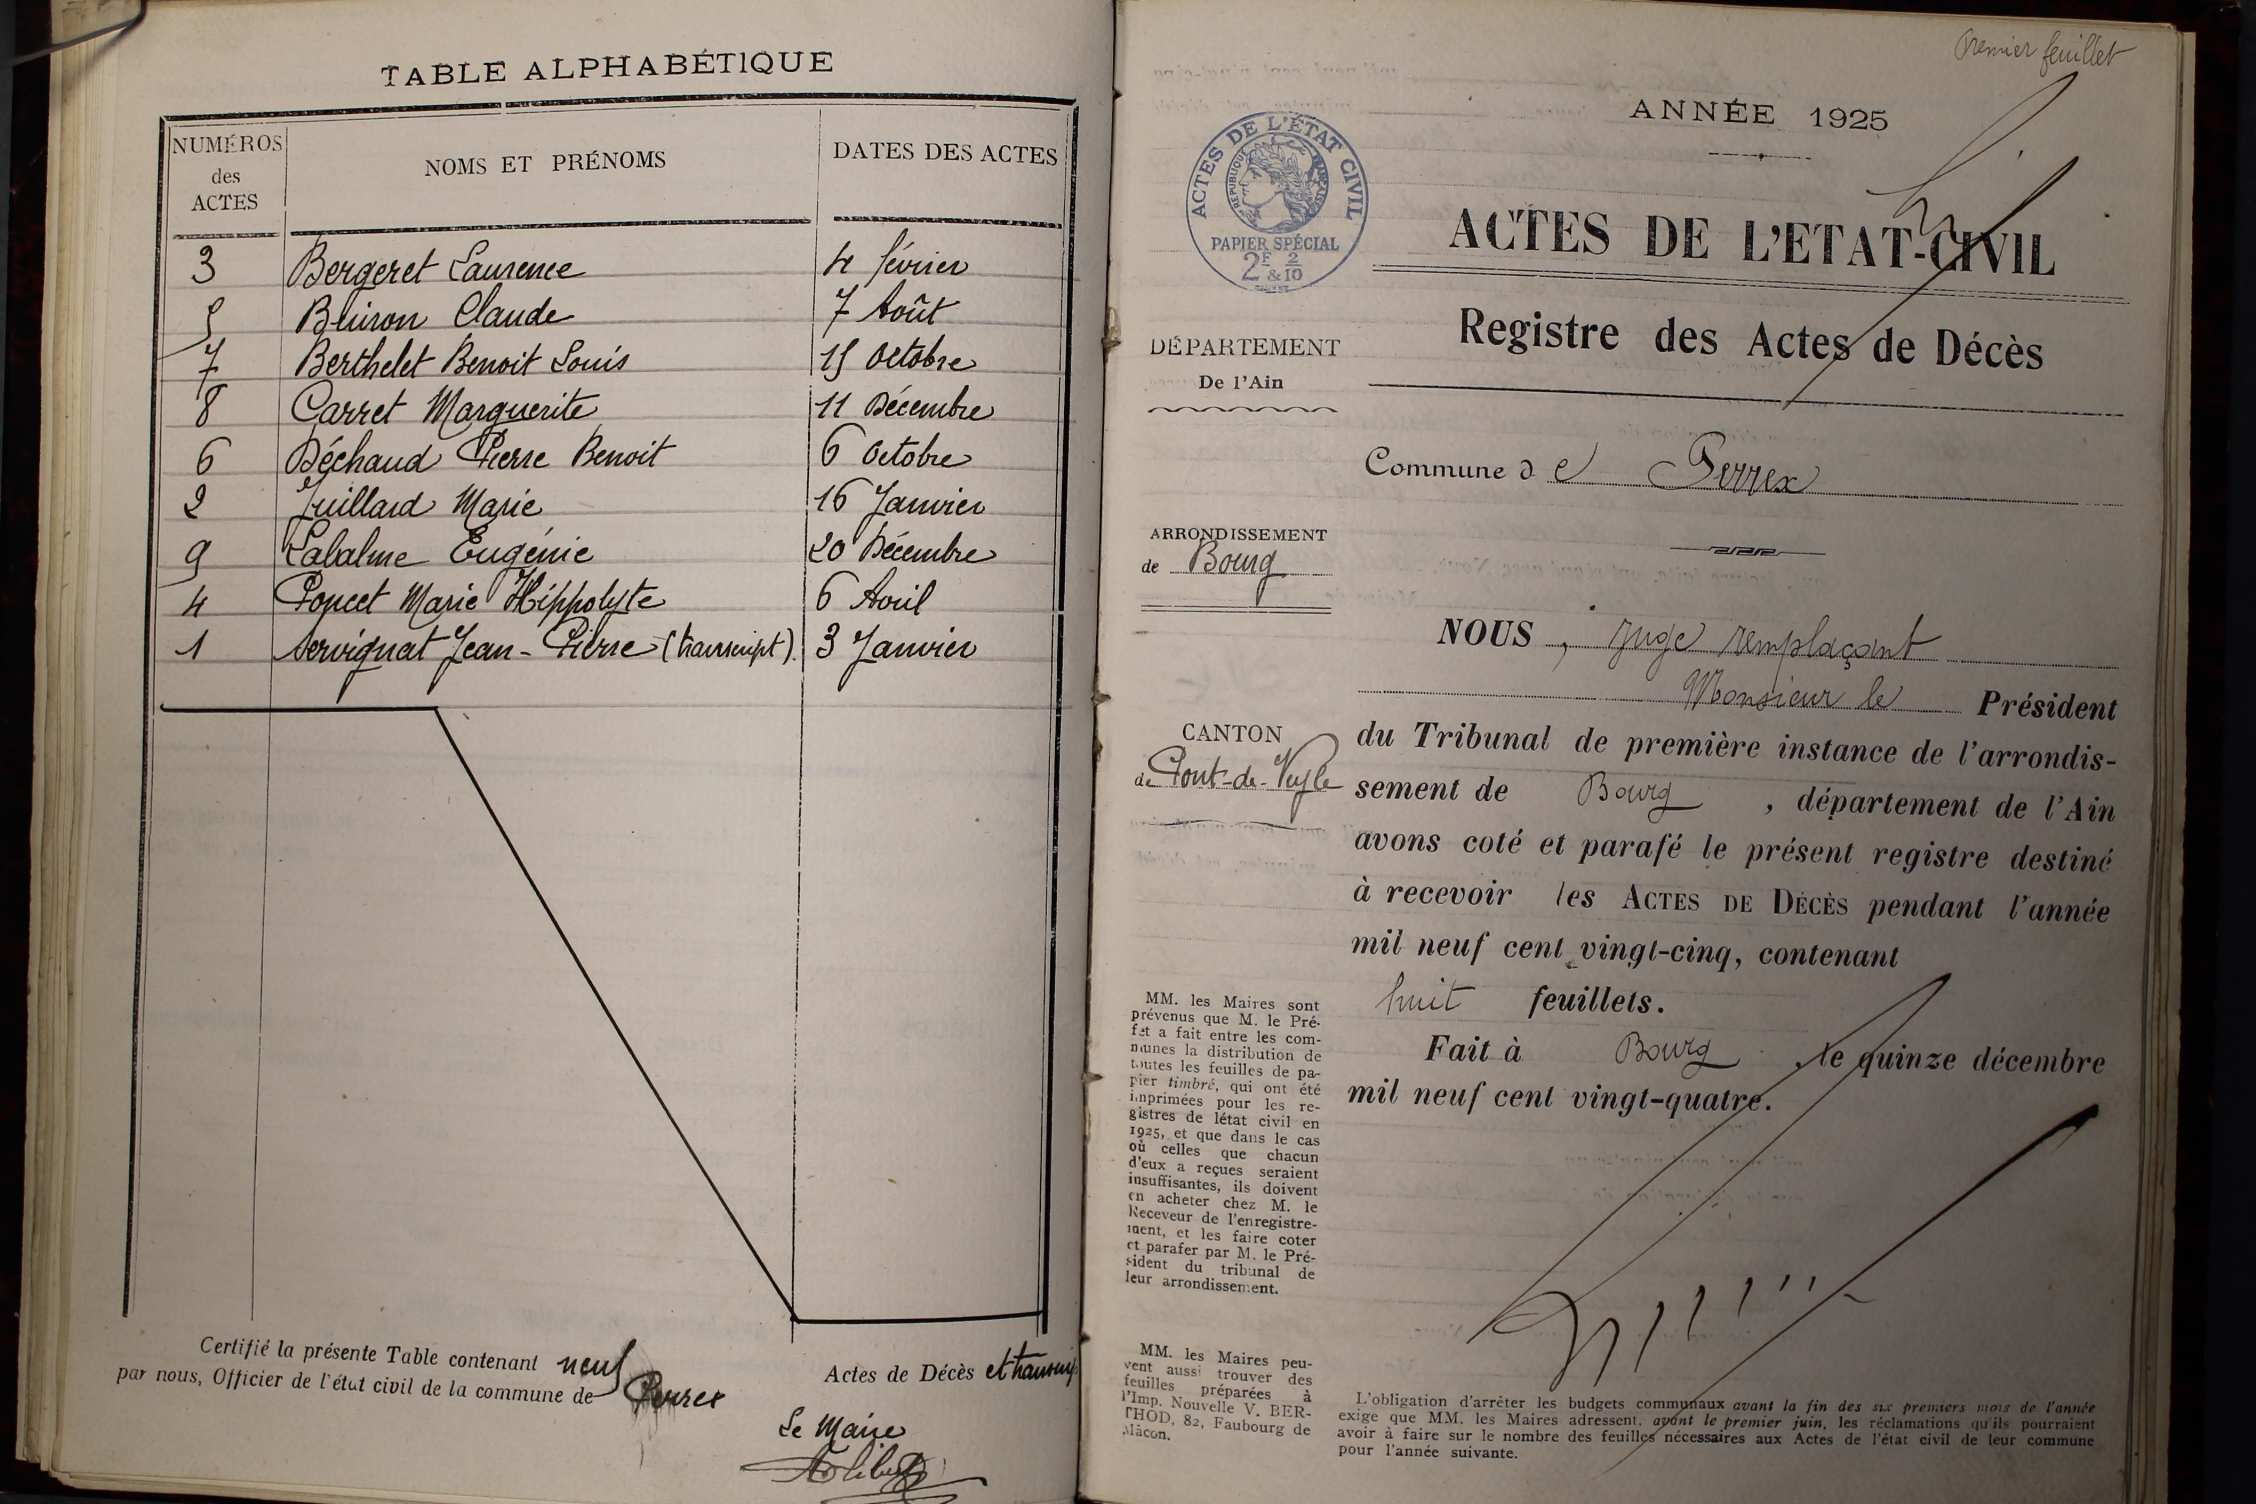 TABLE ALPHABÉTIQUE
NUMÉROS des ACTES | NOMS ET PRÉNOMS | DATES DES ACTES
3 Bergeret Laurence 4 février
5 Bluiron Claude 7 Août
7 Berthelet Benoit Louis 15 Octobre
8 Carret Marguerite 11 Décembre
6 Déchaud Pierre Benoit 6 Octobre
2 Juillard Marie 16 Janvier
9 Labalme Eugénie 20 Décembre
4 Poncet Marie Hippolyte 6 Avril
1 Servignat Jean-Pierre (transcript). 3 Janvier
Certifié la présente Table contenant neuf Actes de Décès et transcrip.
par nous, Officier de l'état civil de la commune de Perrex
Le Maire
Premier feuillet
ANNÉE 1925
ACTES DE L'ÉTAT CIVIL
RÉPUBLIQUE FRANÇAISE
PAPIER SPÉCIAL
2F & 2/10
ACTES DE L'ETAT-CIVIL
Registre des Actes de Décès
DÉPARTEMENT
De l'Ain
Commune de Perrex
ARRONDISSEMENT
de Bourg
CANTON
de Pont-de-Veyle
NOUS, juge remplaçant
Monsieur le Président
du Tribunal de première instance de l'arrondis-
sement de Bourg, département de l'Ain
avons coté et parafé le présent registre destiné
à recevoir les ACTES DE DÉCÈS pendant l'année
mil neuf cent vingt-cinq, contenant
huit feuillets.
Fait à Bourg, le quinze décembre
mil neuf cent vingt-quatre.
MM. les Maires sont
prévenus que M. le Pré-
fet a fait entre les com-
munes la distribution de
toutes les feuilles de pa-
pier timbré, qui ont été
imprimées pour les re-
gistres de létat civil en
1925, et que dans le cas
où celles que chacun
d'eux a reçues seraient
insuffisantes, ils doivent
en acheter chez M. le
Receveur de l'enregistre-
ment, et les faire coter
et parafer par M. le Pré-
sident du tribunal de
leur arrondissement.
MM. les Maires peu-
vent aussi trouver des
feuilles préparées à
l'Imp. Nouvelle V. BER-
THOD, 82, Faubourg de
Mâcon.
L'obligation d'arrêter les budgets communaux avant la fin des six premiers mois de l'année
exige que MM. les Maires adressent, avant le premier juin, les réclamations qu'ils pourraient
avoir à faire sur le nombre des feuilles nécessaires aux Actes de l'état civil de leur commune
pour l'année suivante.